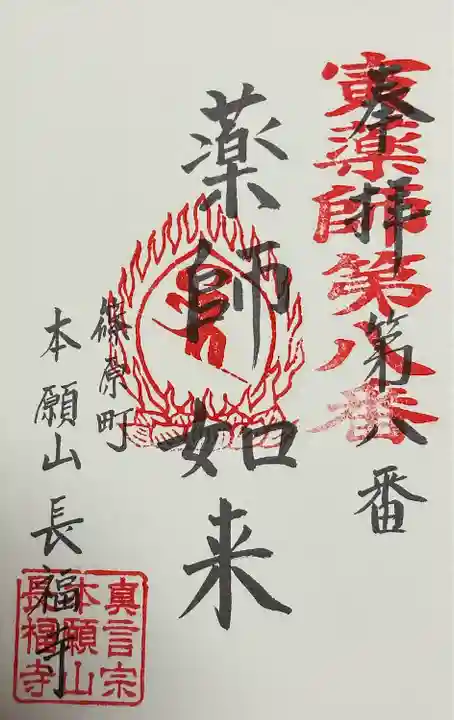 奉拝 第八番
寅薬師第八番
薬師如来
篠原町
本願山 長福寺
真言宗
本願山
長福寺